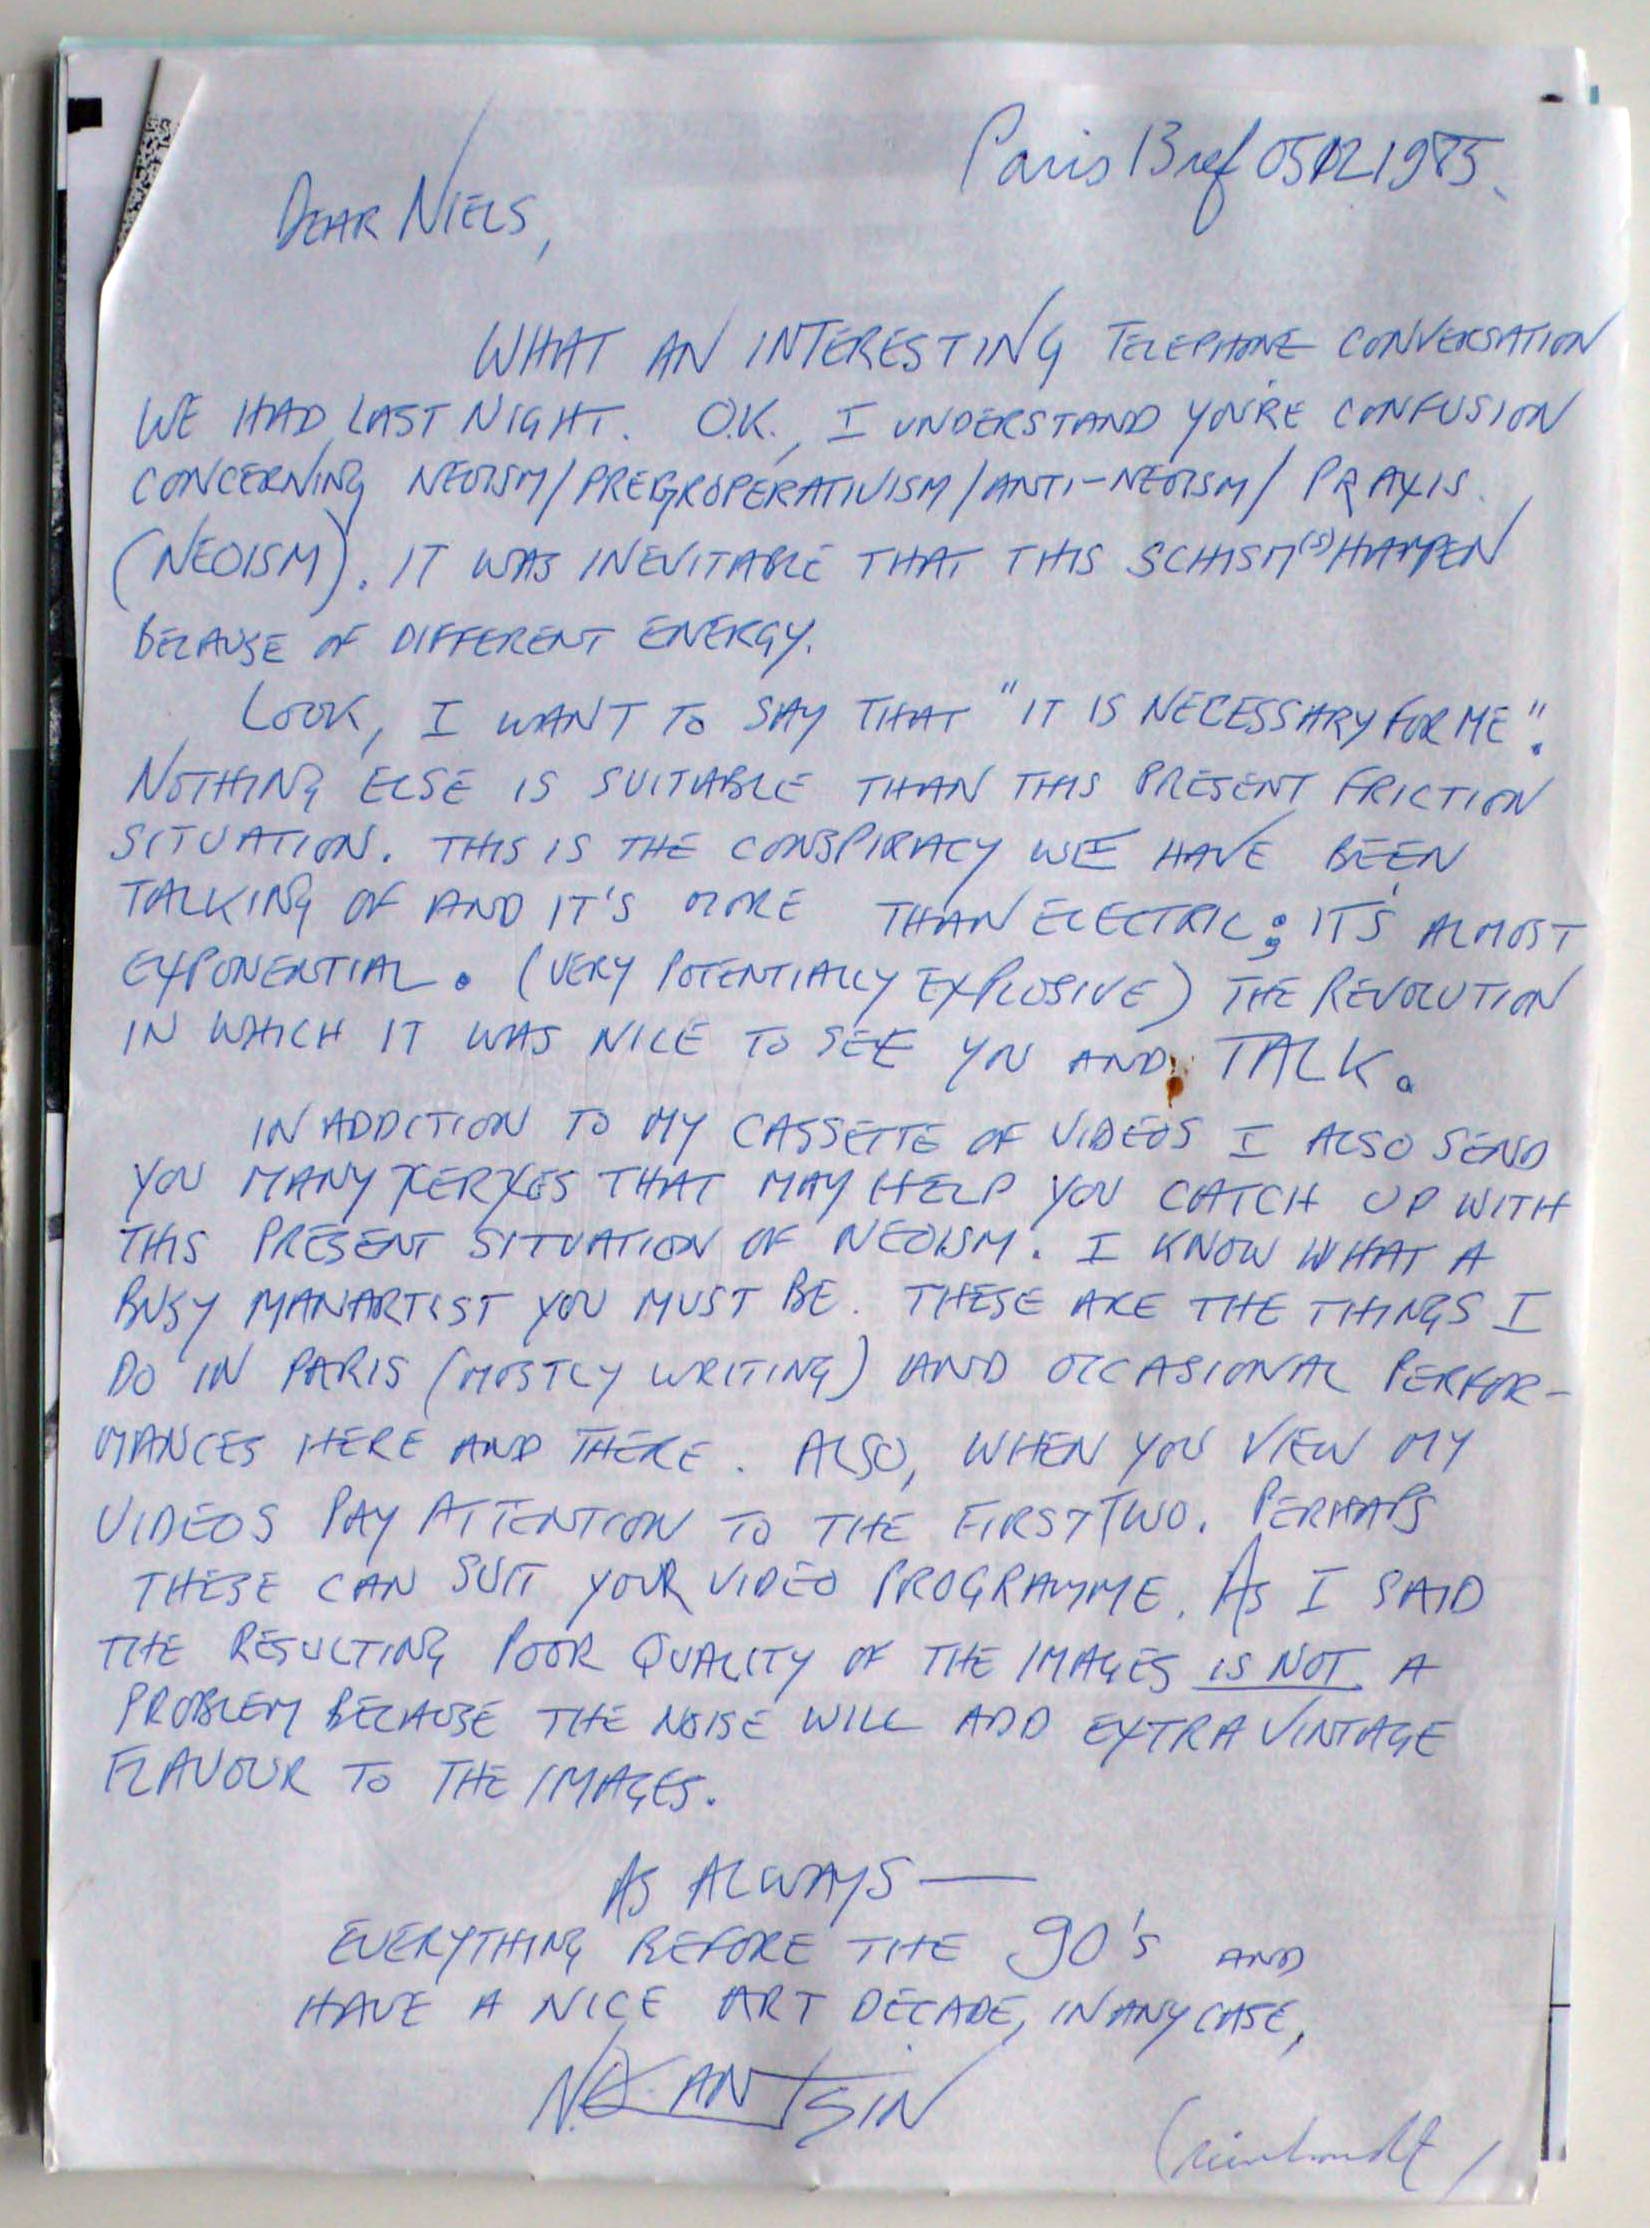 Paris 13 ref 05021985.
DEAR NIELS,
WHAT AN INTERESTING TELEPHONE CONVERSATION
WE HAD LAST NIGHT. O.K., I UNDERSTAND YOU'RE CONFUSION
CONCERNING NEOISM/PREGROPERATIVISM/ANTI-NEOISM/PRAXIS.
(NEOISM). IT WAS INEVITABLE THAT THIS SCHISM(S) HAPPEN
BECAUSE OF DIFFERENT ENERGY.
LOOK, I WANT TO SAY THAT "IT IS NECESSARY FOR ME".
NOTHING ELSE IS SUITABLE THAN THIS PRESENT FRICTION
SITUATION. THIS IS THE CONSPIRACY WE HAVE BEEN
TALKING OF AND IT'S MORE THAN ELECTRIC; IT'S ALMOST
EXPONENTIAL. (VERY POTENTIALLY EXPLOSIVE) THE REVOLUTION
IN WHICH IT WAS NICE TO SEE YOU AND TALK.
IN ADDITION TO MY CASSETTE OF VIDEOS I ALSO SEND
YOU MANY XERXES THAT MAY HELP YOU CATCH UP WITH
THIS PRESENT SITUATION OF NEOISM. I KNOW WHAT A
BUSY MANARTIST YOU MUST BE. THESE ARE THE THINGS I
DO IN PARIS (MOSTLY WRITING) AND OCCASIONAL PERFOR-
MANCES HERE AND THERE. ALSO, WHEN YOU VIEW MY
VIDEOS PAY ATTENTION TO THE FIRST TWO. PERHAPS
THESE CAN SUIT YOUR VIDEO PROGRAMME. AS I SAID
THE RESULTING POOR QUALITY OF THE IMAGES IS NOT A
PROBLEM BECAUSE THE NOISE WILL ADD EXTRA VINTAGE
FLAVOUR TO THE IMAGES.
AS ALWAYS —
EVERYTHING BEFORE THE 90'S AND
HAVE A NICE ART DECADE, IN ANY CASE,